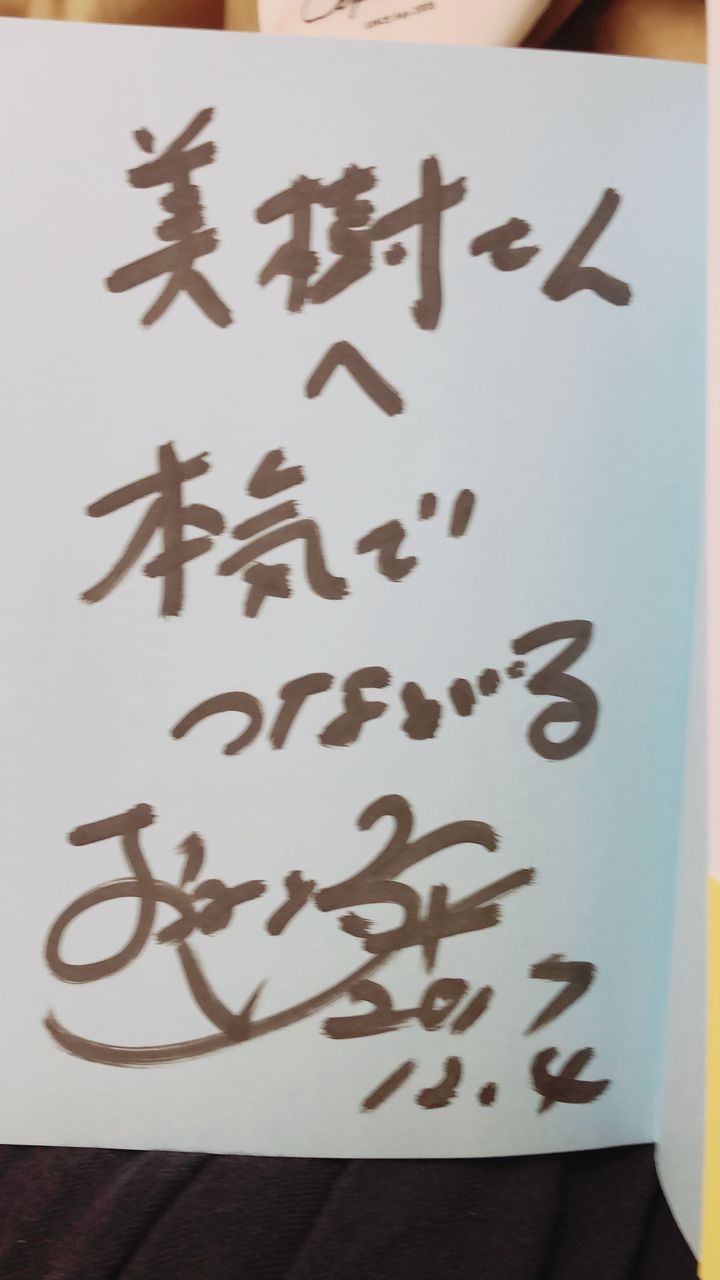 美樹さん
へ
本気で
つながる
2017
12.4